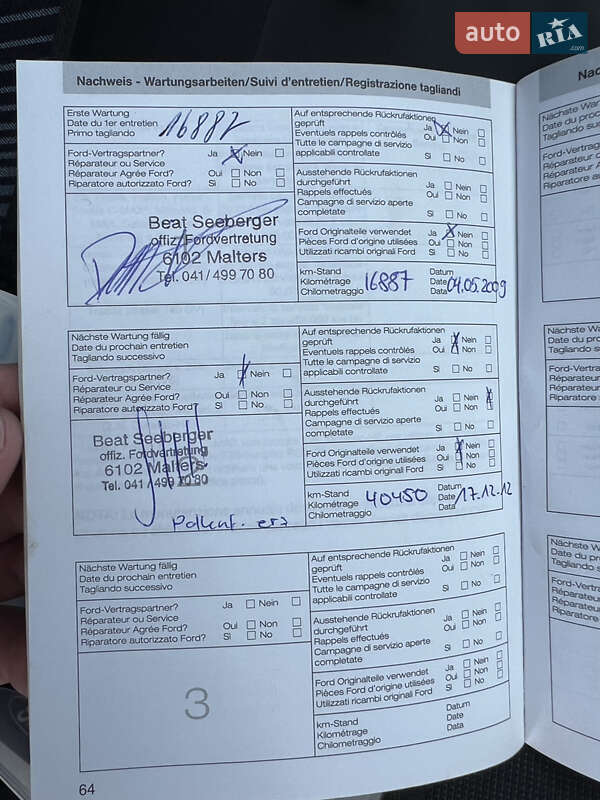 auto RIA .com
Nachweis - Wartungsarbeiten/Suivi d'entretien/Registrazione tagliandi
Erste Wartung
Date du 1er entretien
Primo tagliando
16887
Ford-Vertragspartner? Ja Nein
Réparateur ou Service
Réparateur Agrée Ford? Oui Non
Riparatore autorizzato Ford? Sì No
Beat Seeberger
offiz. Fordvertretung
6102 Malters
Tel. 041/499 70 80
Auf entsprechende Rückrufaktionen
geprüft Ja Nein
Eventuels rappels contrôlés Oui Non
Tutte le campagne di servizio
applicabili controllate Sì No
Ausstehende Rückrufaktionen
durchgeführt Ja Nein
Rappels effectués Oui Non
Campagne di servizio aperte
completate Sì No
Ford Originalteile verwendet Ja Nein
Pièces Ford d'origine utilisées Oui Non
Utilizzati ricambi originali Ford Sì No
km-Stand Datum
Kilométrage 16887 Date 04.05.2009
Chilometraggio Data
Nächste Wartung fällig
Date du prochain entretien
Tagliando successivo
Ford-Vertragspartner? Ja Nein
Réparateur ou Service
Réparateur Agrée Ford? Oui Non
Riparatore autorizzato Ford? Sì No
Beat Seeberger
offiz. Fordvertretung
6102 Malters
Tel. 041/499 70 80
Auf entsprechende Rückrufaktionen
geprüft Ja Nein
Eventuels rappels contrôlés Oui Non
Tutte le campagne di servizio
applicabili controllate Sì No
Ausstehende Rückrufaktionen
durchgeführt Ja Nein
Rappels effectués Oui Non
Campagne di servizio aperte
completate Sì No
Ford Originalteile verwendet Ja Nein
Pièces Ford d'origine utilisées Oui Non
Utilizzati ricambi originali Ford Sì No
km-Stand Datum
Kilométrage 40450 Date 17.12.12
Chilometraggio Data
Nächste Wartung fällig
Date du prochain entretien
Tagliando successivo
Ford-Vertragspartner? Ja Nein
Réparateur ou Service
Réparateur Agrée Ford? Oui Non
Riparatore autorizzato Ford? Sì No
3
Auf entsprechende Rückrufaktionen
geprüft Ja Nein
Eventuels rappels contrôlés Oui Non
Tutte le campagne di servizio
applicabili controllate Sì No
Ausstehende Rückrufaktionen
durchgeführt Ja Nein
Rappels effectués Oui Non
Campagne di servizio aperte
completate Sì No
Ford Originalteile verwendet Ja Nein
Pièces Ford d'origine utilisées Oui Non
Utilizzati ricambi originali Ford Sì No
km-Stand Datum
Kilométrage Date
Chilometraggio Data
64
Nächste Wartung
Date du prochain
Tagliando success
Ford-Vertragspartn
Réparateur ou Serv
Réparateur Agrée
Riparatore autorizz
Nächste Wartung
Date du prochain
Tagliando success
Ford-Vertragspart
Réparateur ou Ser
Réparateur Agrée
Riparatore autorizz
Nächste Wartung
Date du prochain
Tagliando succes
Ford-Vertragspart
Réparateur ou Se
Réparateur Agrée
Riparatore autori